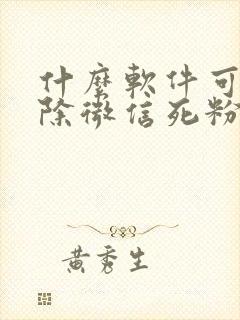 什麼軟件可
除微信死粉
黃秀生